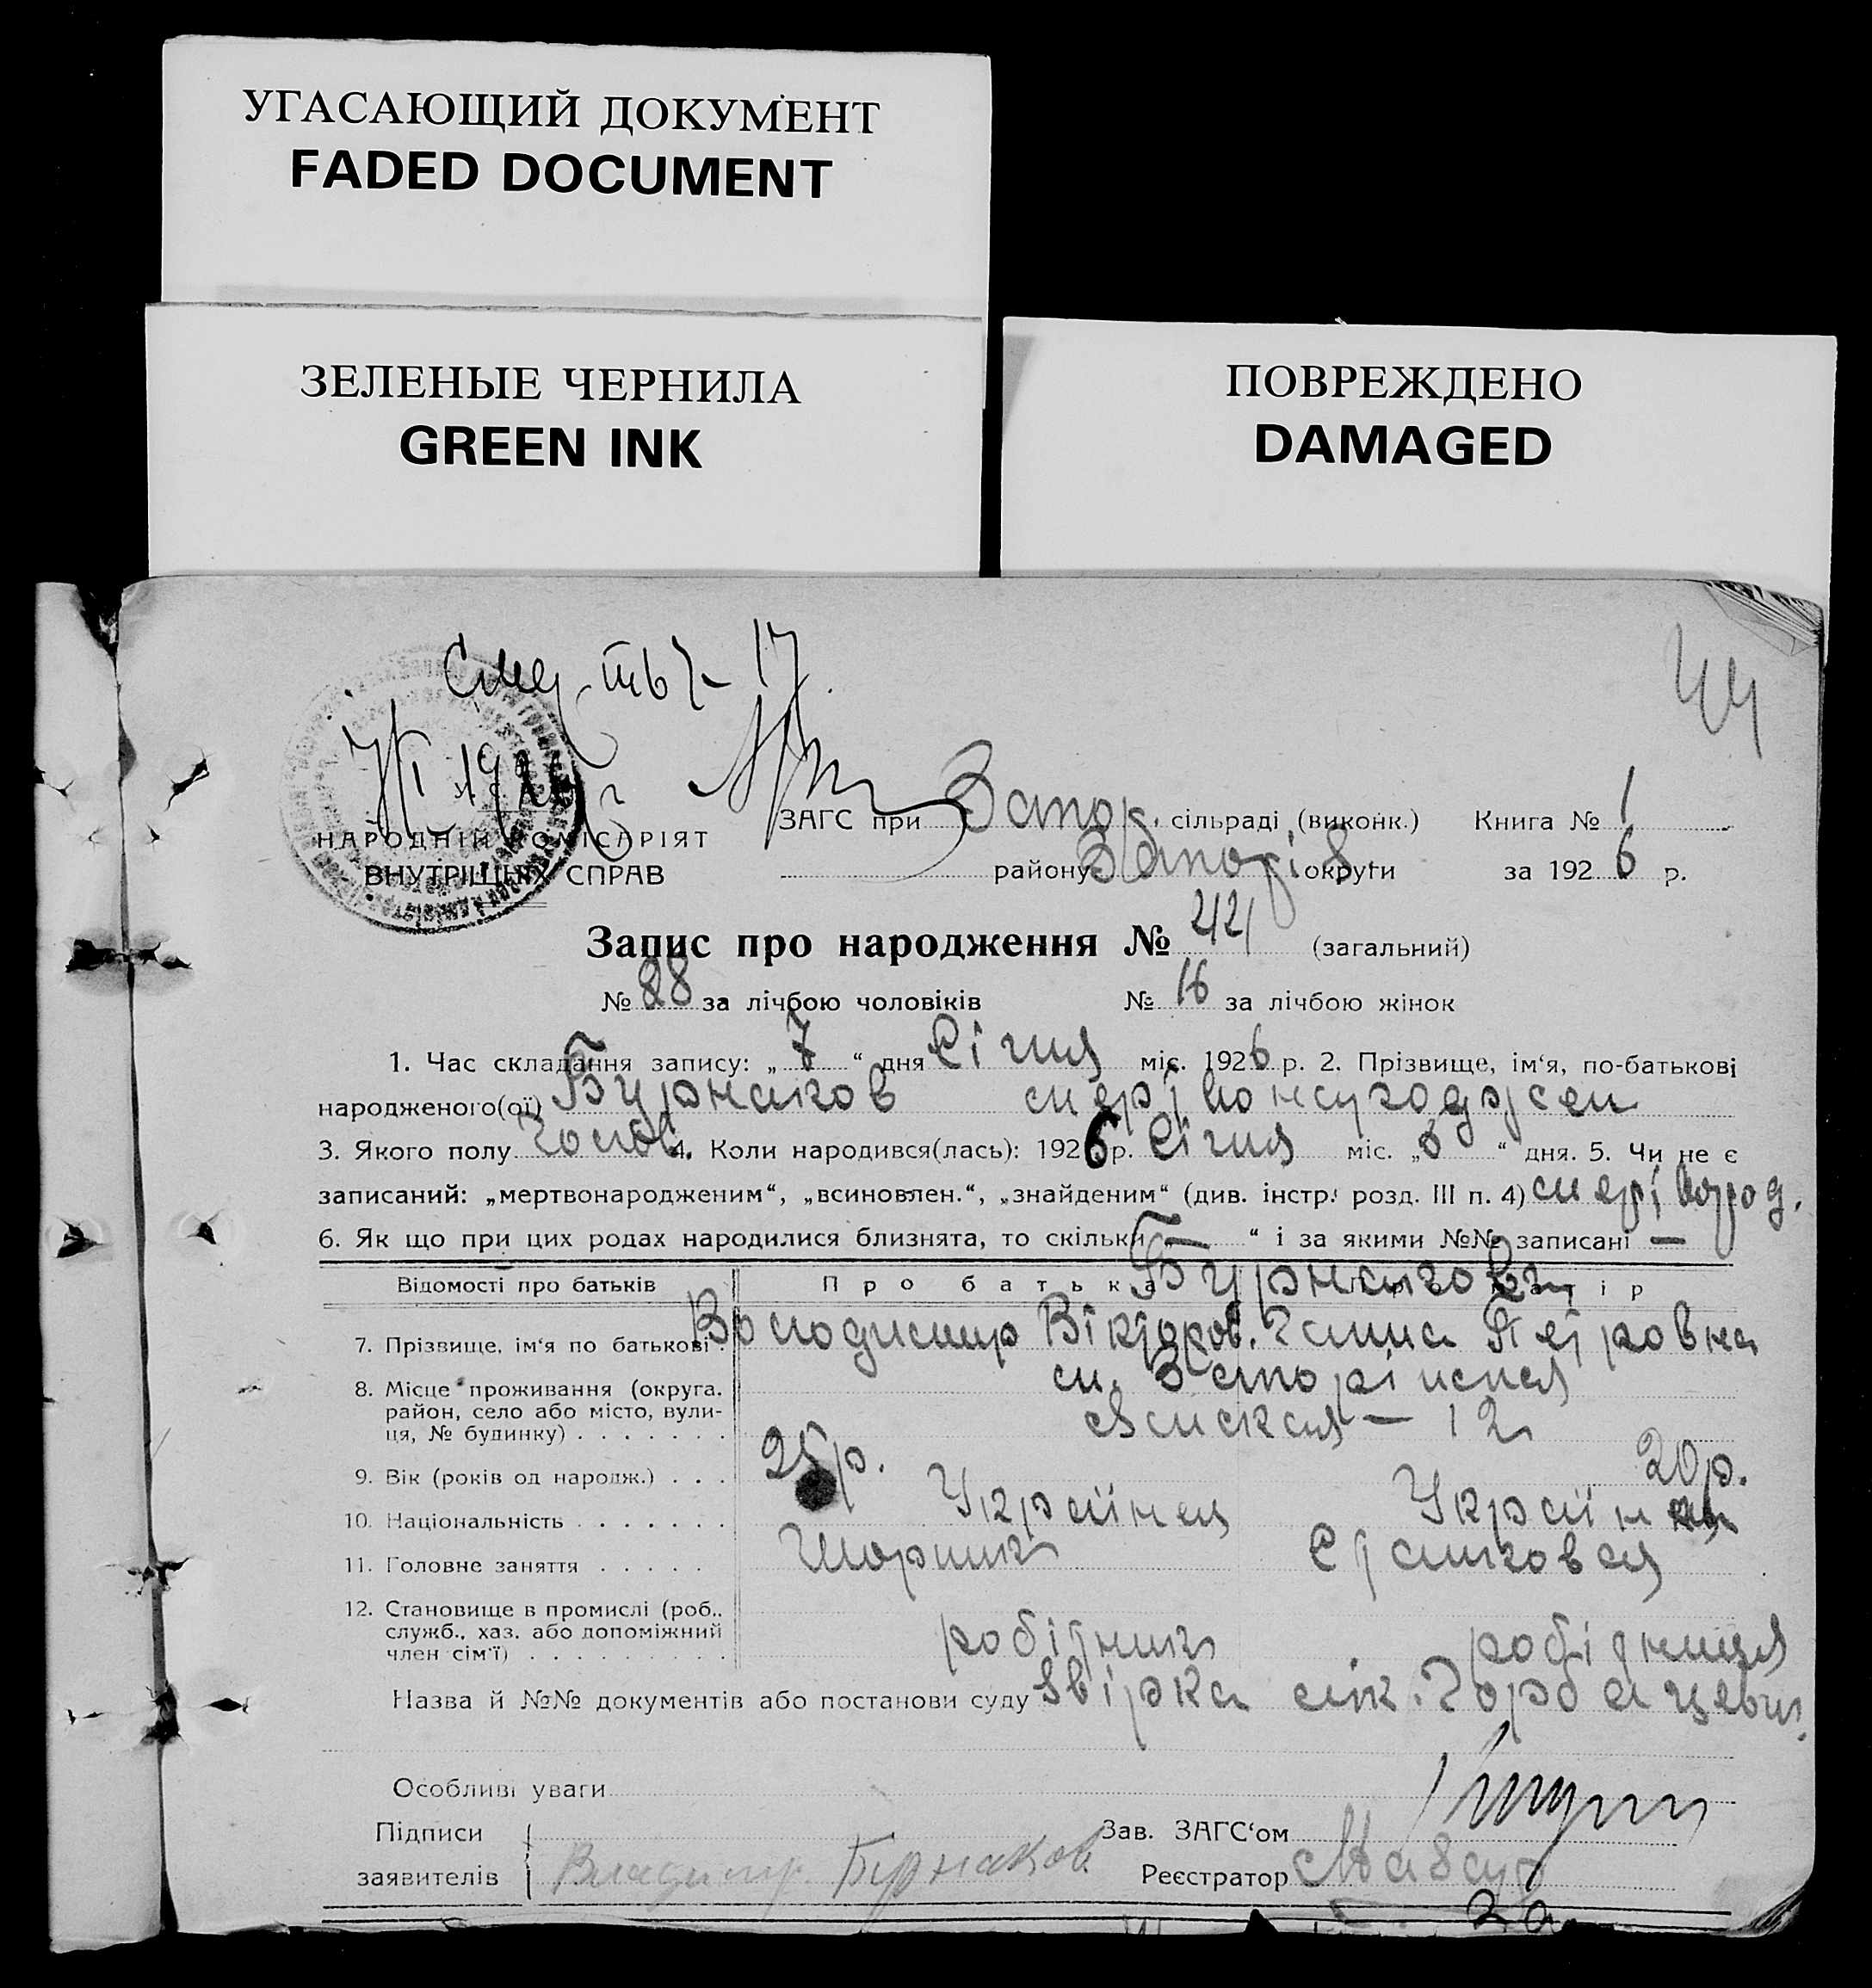 УГАСАЮЩИЙ ДОКУМЕНТ
FADED DOCUMENT
ЗЕЛЕНЫЕ ЧЕРНИЛА
GREEN INK
ПОВРЕЖДЕНО
DAMAGED
44
НАРОДНІЙ КОМІСАРІЯТ
ВНУТРІШНІХ СПРАВ
ЗАГС при Запор. сільраді (виконк.) Книга № 1
району Запорі округи за 1926 р.
Запис про народження № 44 (загальний)
№ 28 за лічбою чоловіків № 16 за лічбою жінок
1. Час складання запису: „7“ дня Січня міс. 1926 р. 2. Прізвище, ім‘я, по-батькові
народженого(ої) Бурнаков
3. Якого полу Чолов. 4. Коли народився(лась): 1926 р. Січня міс. „6“ дня. 5. Чи не є
записаний: „мертвонародженим“, „всиновлен.“, „знайденим“ (див. інстр. розд. III п. 4)
6. Як що при цих родах народилися близнята, то скільки „—“ і за якими №№ записані —
Відомості про батьків Про батька Про матір
Бурнакови
7. Прізвище, ім‘я по батькові. Володимир Вікторов. Ганна Петровна
8. Місце проживання (округа, м. Запоріжжя
район, село або місто, вули- — 12
ця, № будинку)
9. Вік (років од народж.) 25 р. 20 р.
10. Національність
11. Головне заняття
12. Становище в промислі (роб.,
служб., хаз. або допоміжний робітник робітниця
член сім‘ї)
Назва й №№ документів або постанови суду
Особливі уваги
Підписи Зав. ЗАГС‘ом
заявителів Владимир Бурнаков Реєстратор